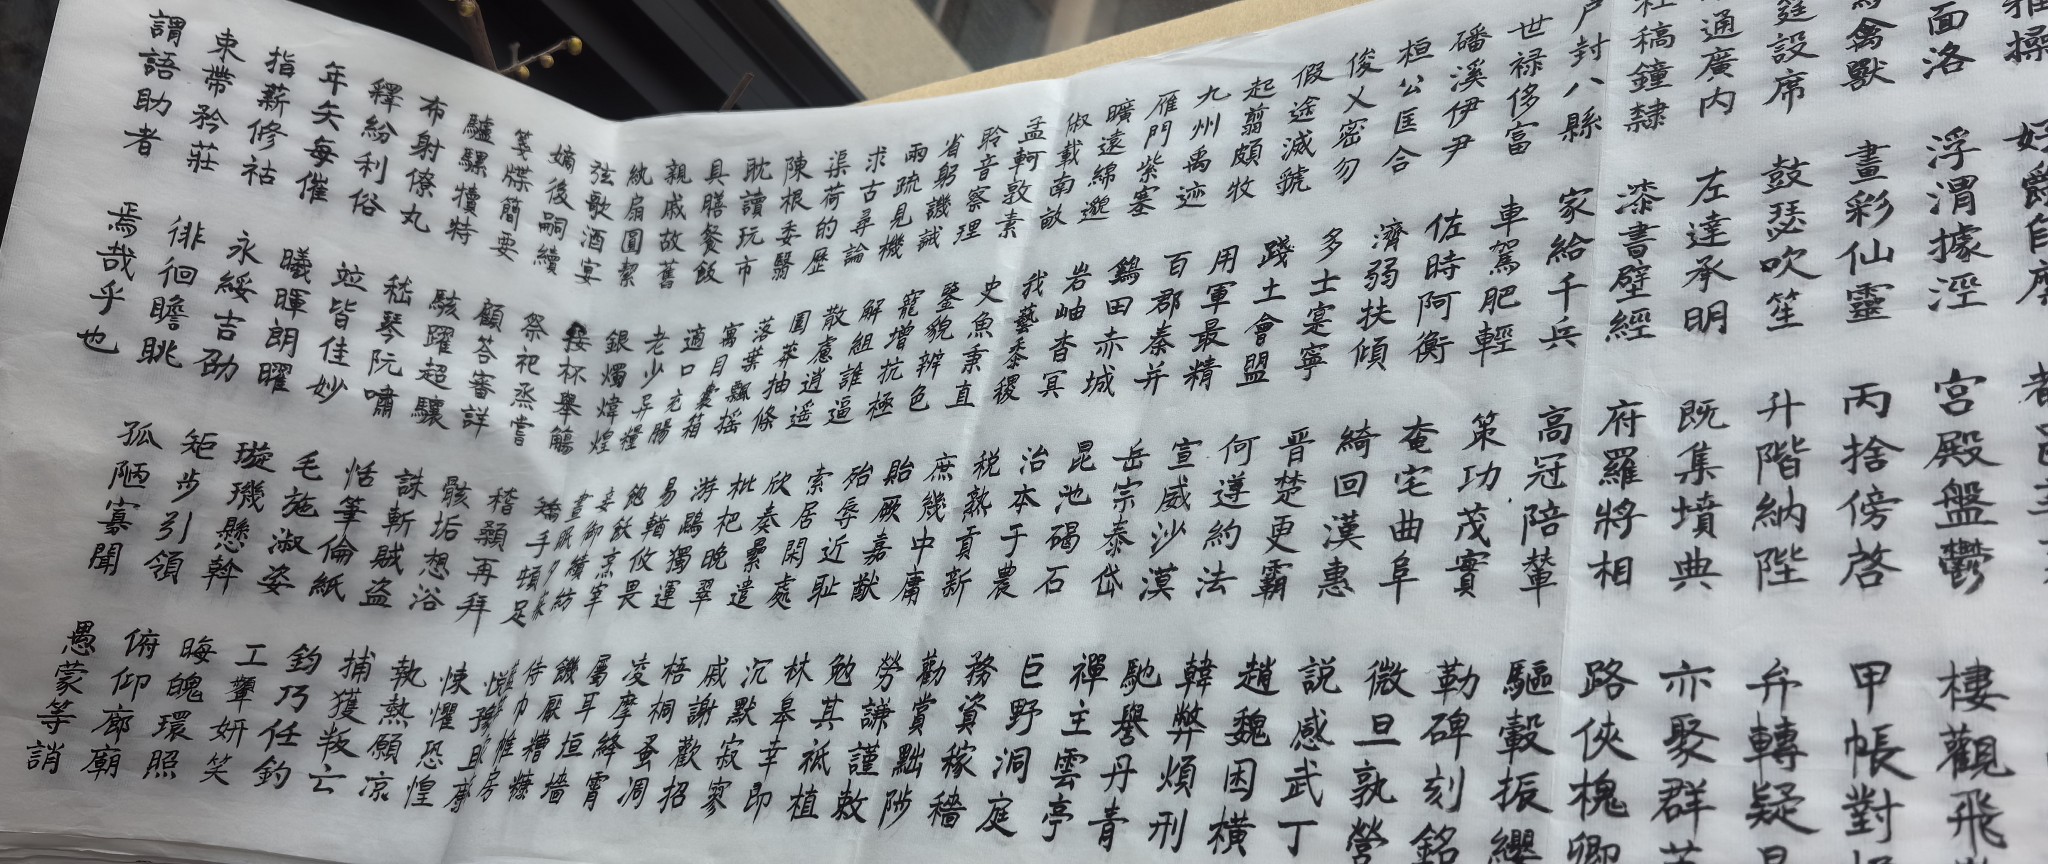 雅操 好爵自縻
面洛 浮渭據涇 宮殿盤鬱 樓觀飛
禽獸 畫彩仙靈 丙捨傍啓 甲帳對
筵設席 鼓瑟吹笙 升階納陛 弁轉疑
通廣內 左達承明 既集墳典 亦聚群
稿鐘隸 漆書壁經 府羅將相 路俠槐卿
戶封八縣 家給千兵 高冠陪輦 驅轂振纓
世祿侈富 車駕肥輕 策功茂實 勒碑刻銘
磻溪伊尹 佐時阿衡 奄宅曲阜 微旦孰營
桓公匡合 濟弱扶傾 綺回漢惠 説感武丁
俊乂密勿 多士寔寧 晋楚更霸 趙魏困橫
假途滅虢 踐土會盟 何遵約法 韓弊煩刑
起翦頗牧 用軍最精 宣威沙漠 馳譽丹青
九州禹迹 百郡秦并 岳宗泰岱 禪主雲亭
雁門紫塞 鷄田赤城 昆池碣石 巨野洞庭
曠遠綿邈 岩岫杳冥 治本于農 務資稼穡
俶載南畝 我藝黍稷 税熟貢新 勸賞黜陟
孟軻敦素 史魚秉直 庶幾中庸 勞謙謹敕
聆音察理 鑒貌辨色 貽厥嘉猷 勉其祗植
省躬譏誡 寵增抗極 殆辱近耻 林皋幸即
兩疏見機 解組誰逼 索居閑處 沉默寂寥
求古尋論 散慮逍遥 欣奏累遣 戚謝歡招
渠荷的歷 園莽抽條 枇杷晚翠 梧桐蚤凋
陳根委翳 落葉飄摇 游鵾獨運 凌摩絳霄
耽讀玩市 寓目囊箱 易輶攸畏 屬耳垣墻
具膳餐飯 適口充腸 飽飫烹宰 饑厭糟糠
親戚故舊 老少异糧 妾御績紡 侍巾帷房
紈扇圓絜 銀燭煒煌 晝眠夕寐
弦歌酒宴 接杯舉觴 矯手頓足 悦豫且康
嫡後嗣續 祭祀烝嘗 稽顙再拜 悚懼恐惶
箋牒簡要 顧答審詳 骸垢想浴 執熱願凉
驢騾犢特 駭躍超驤 誅斬賊盗 捕獲叛亡
布射僚丸 嵇琴阮嘯 恬筆倫紙 鈞巧任釣
釋紛利俗 竝皆佳妙 毛施淑姿 工顰妍笑
年矢每催 曦暉朗曜 璇璣懸斡 晦魄環照
指薪修祜 永綏吉劭 矩步引領 俯仰廊廟
束帶矜莊 徘徊瞻眺 孤陋寡聞 愚蒙等誚
謂語助者 焉哉乎也